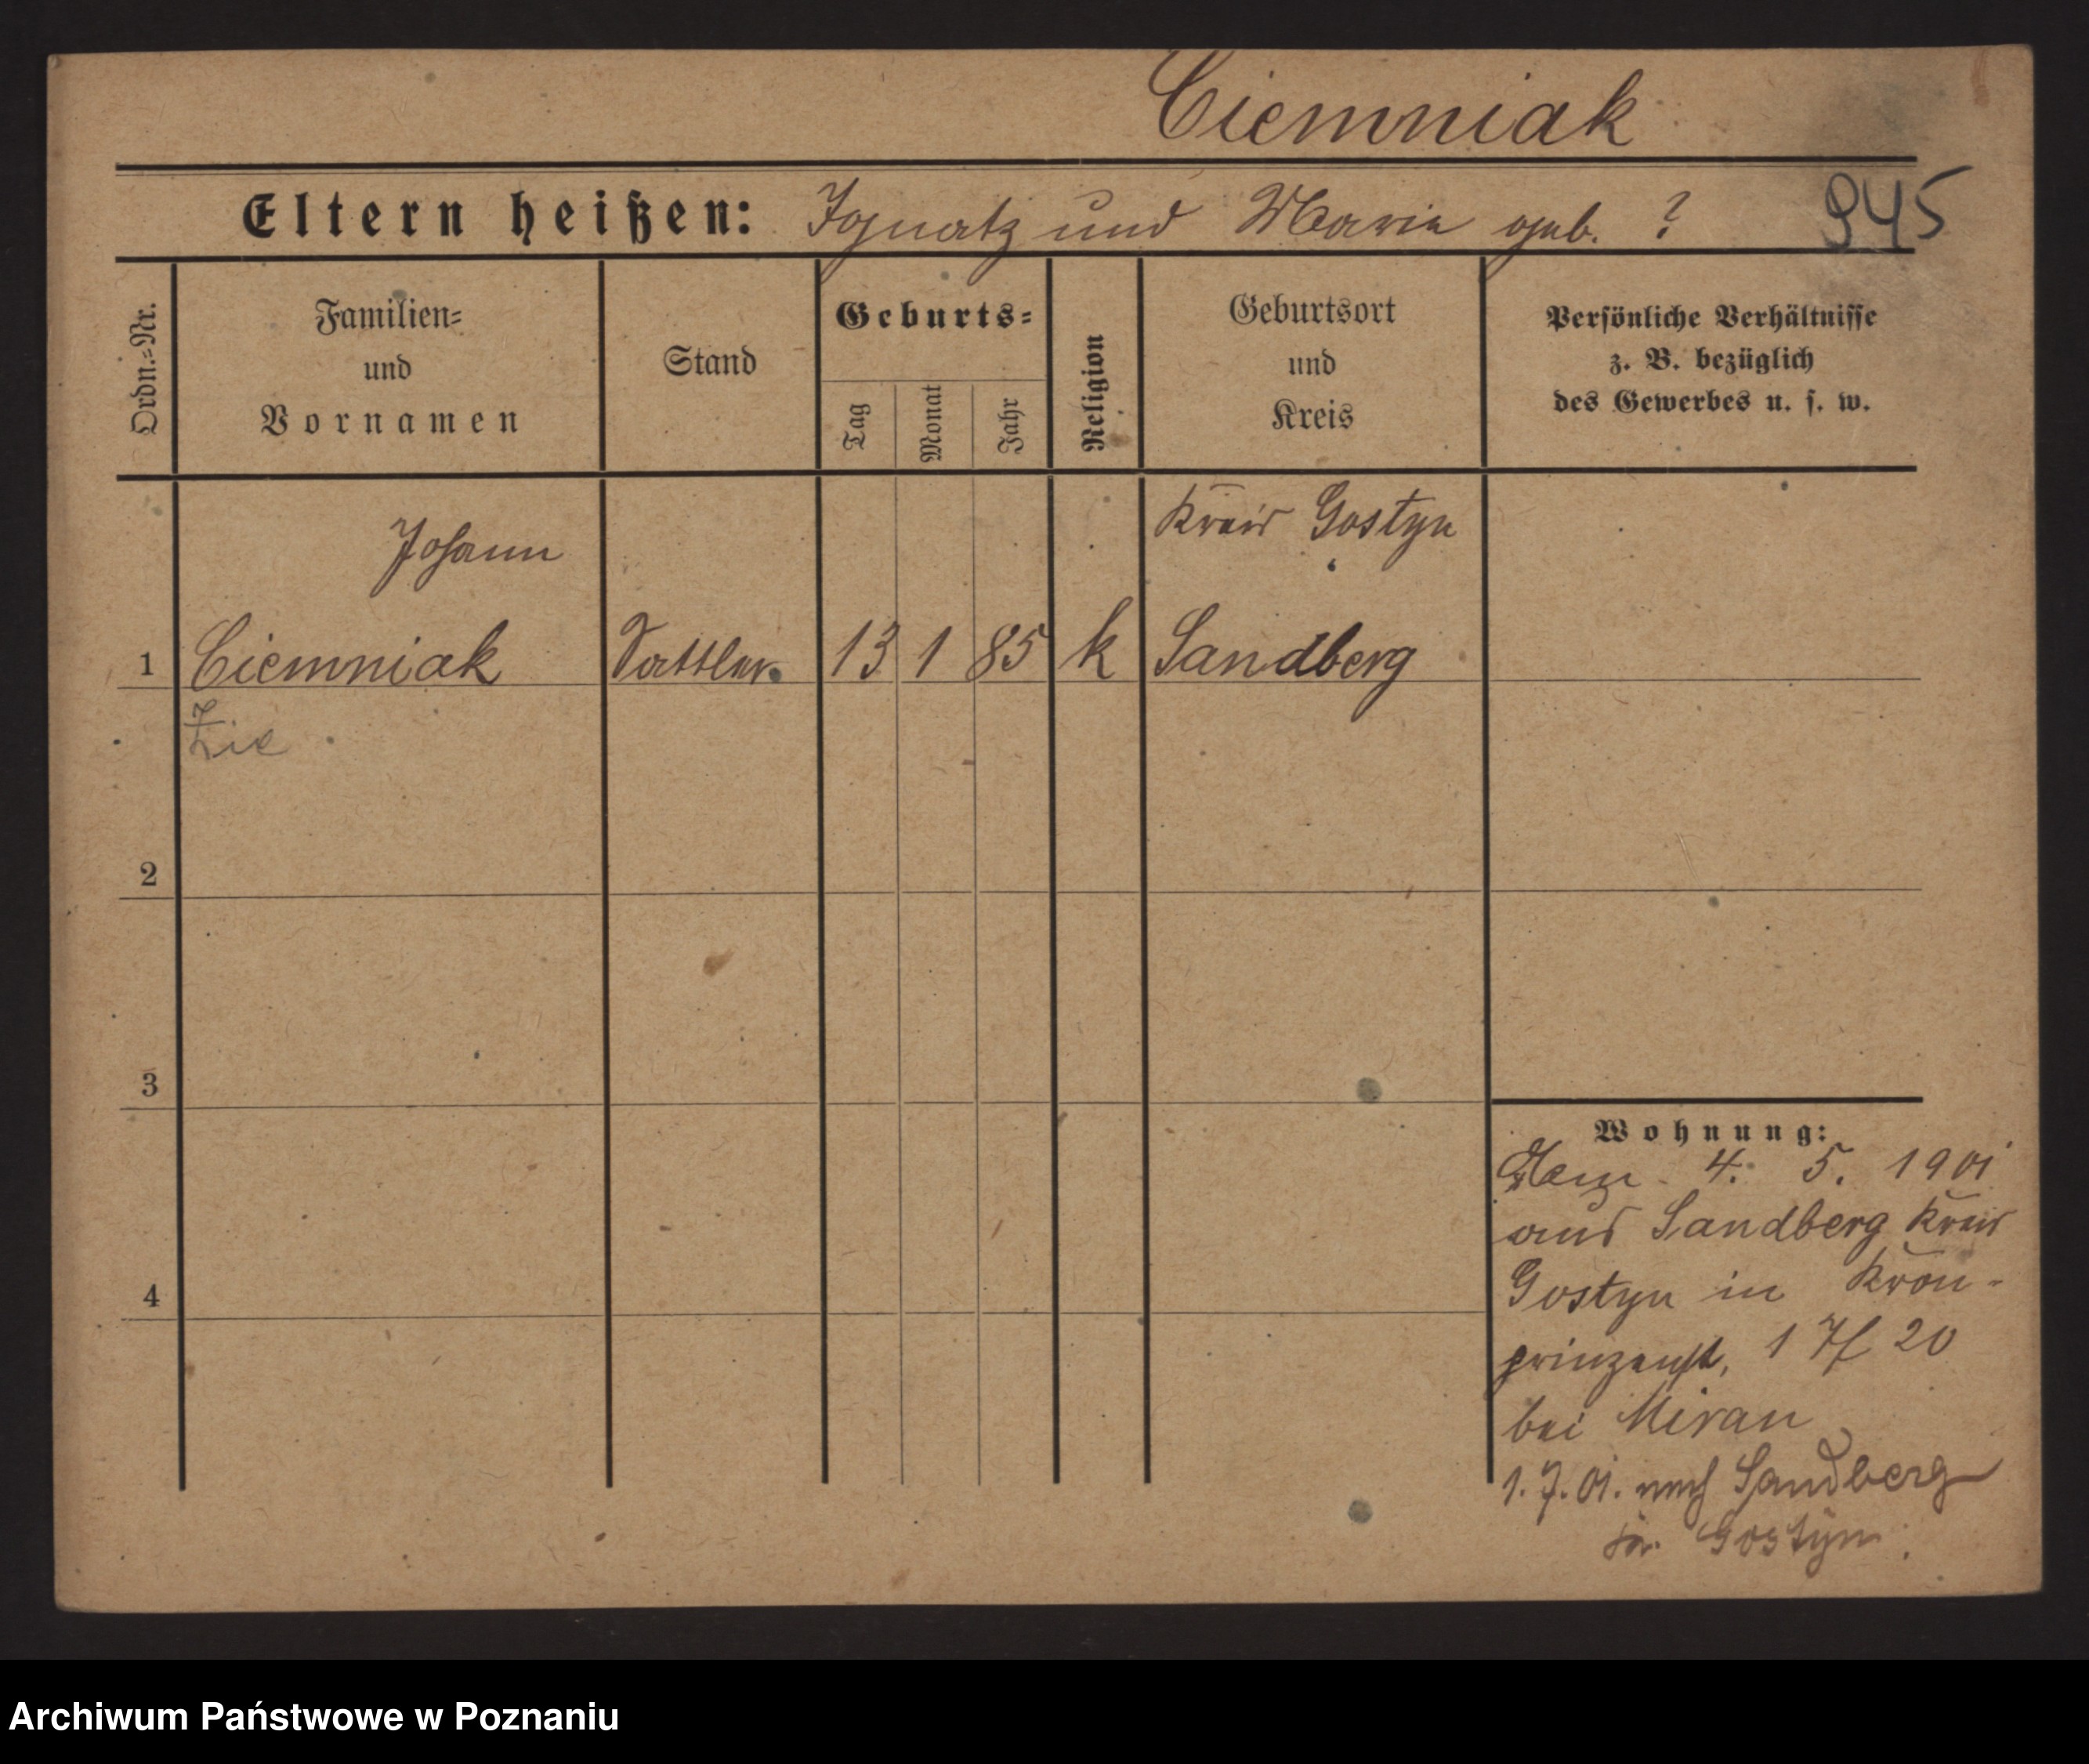 Ciemniak
Eltern heißen: Ignatz und Marie geb. ?
945
Ordn.=Nr.
Familien=
und
Vornamen
Stand
Geburts=
Tag
Monat
Jahr
Religion
Geburtsort
und
Kreis
Persönliche Verhältnisse
z. B. bezüglich
des Gewerbes u. s. w.
Johann
Kreis Gostyn
1 Ciemniak Sattler 13 1 85 k Sandberg
Zie
2
3
4
Wohnung:
4. 5. 1901
aus Sandberg Kreis
Gostyn in Kron-
prinzenst. 1 H 20
bei Miran
1. 7. 01. nach Sandberg
Kr. Gostyn.
Archiwum Państwowe w Poznaniu